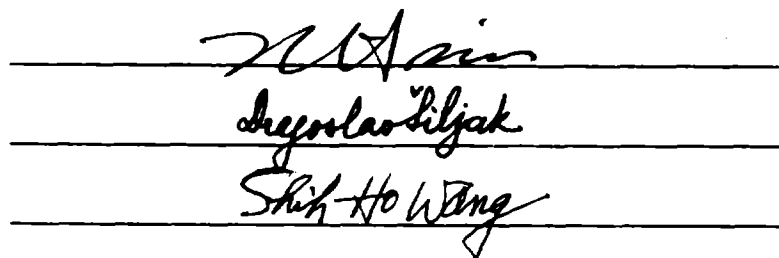 Dragoslav Šiljak
Shih-Ho Wang